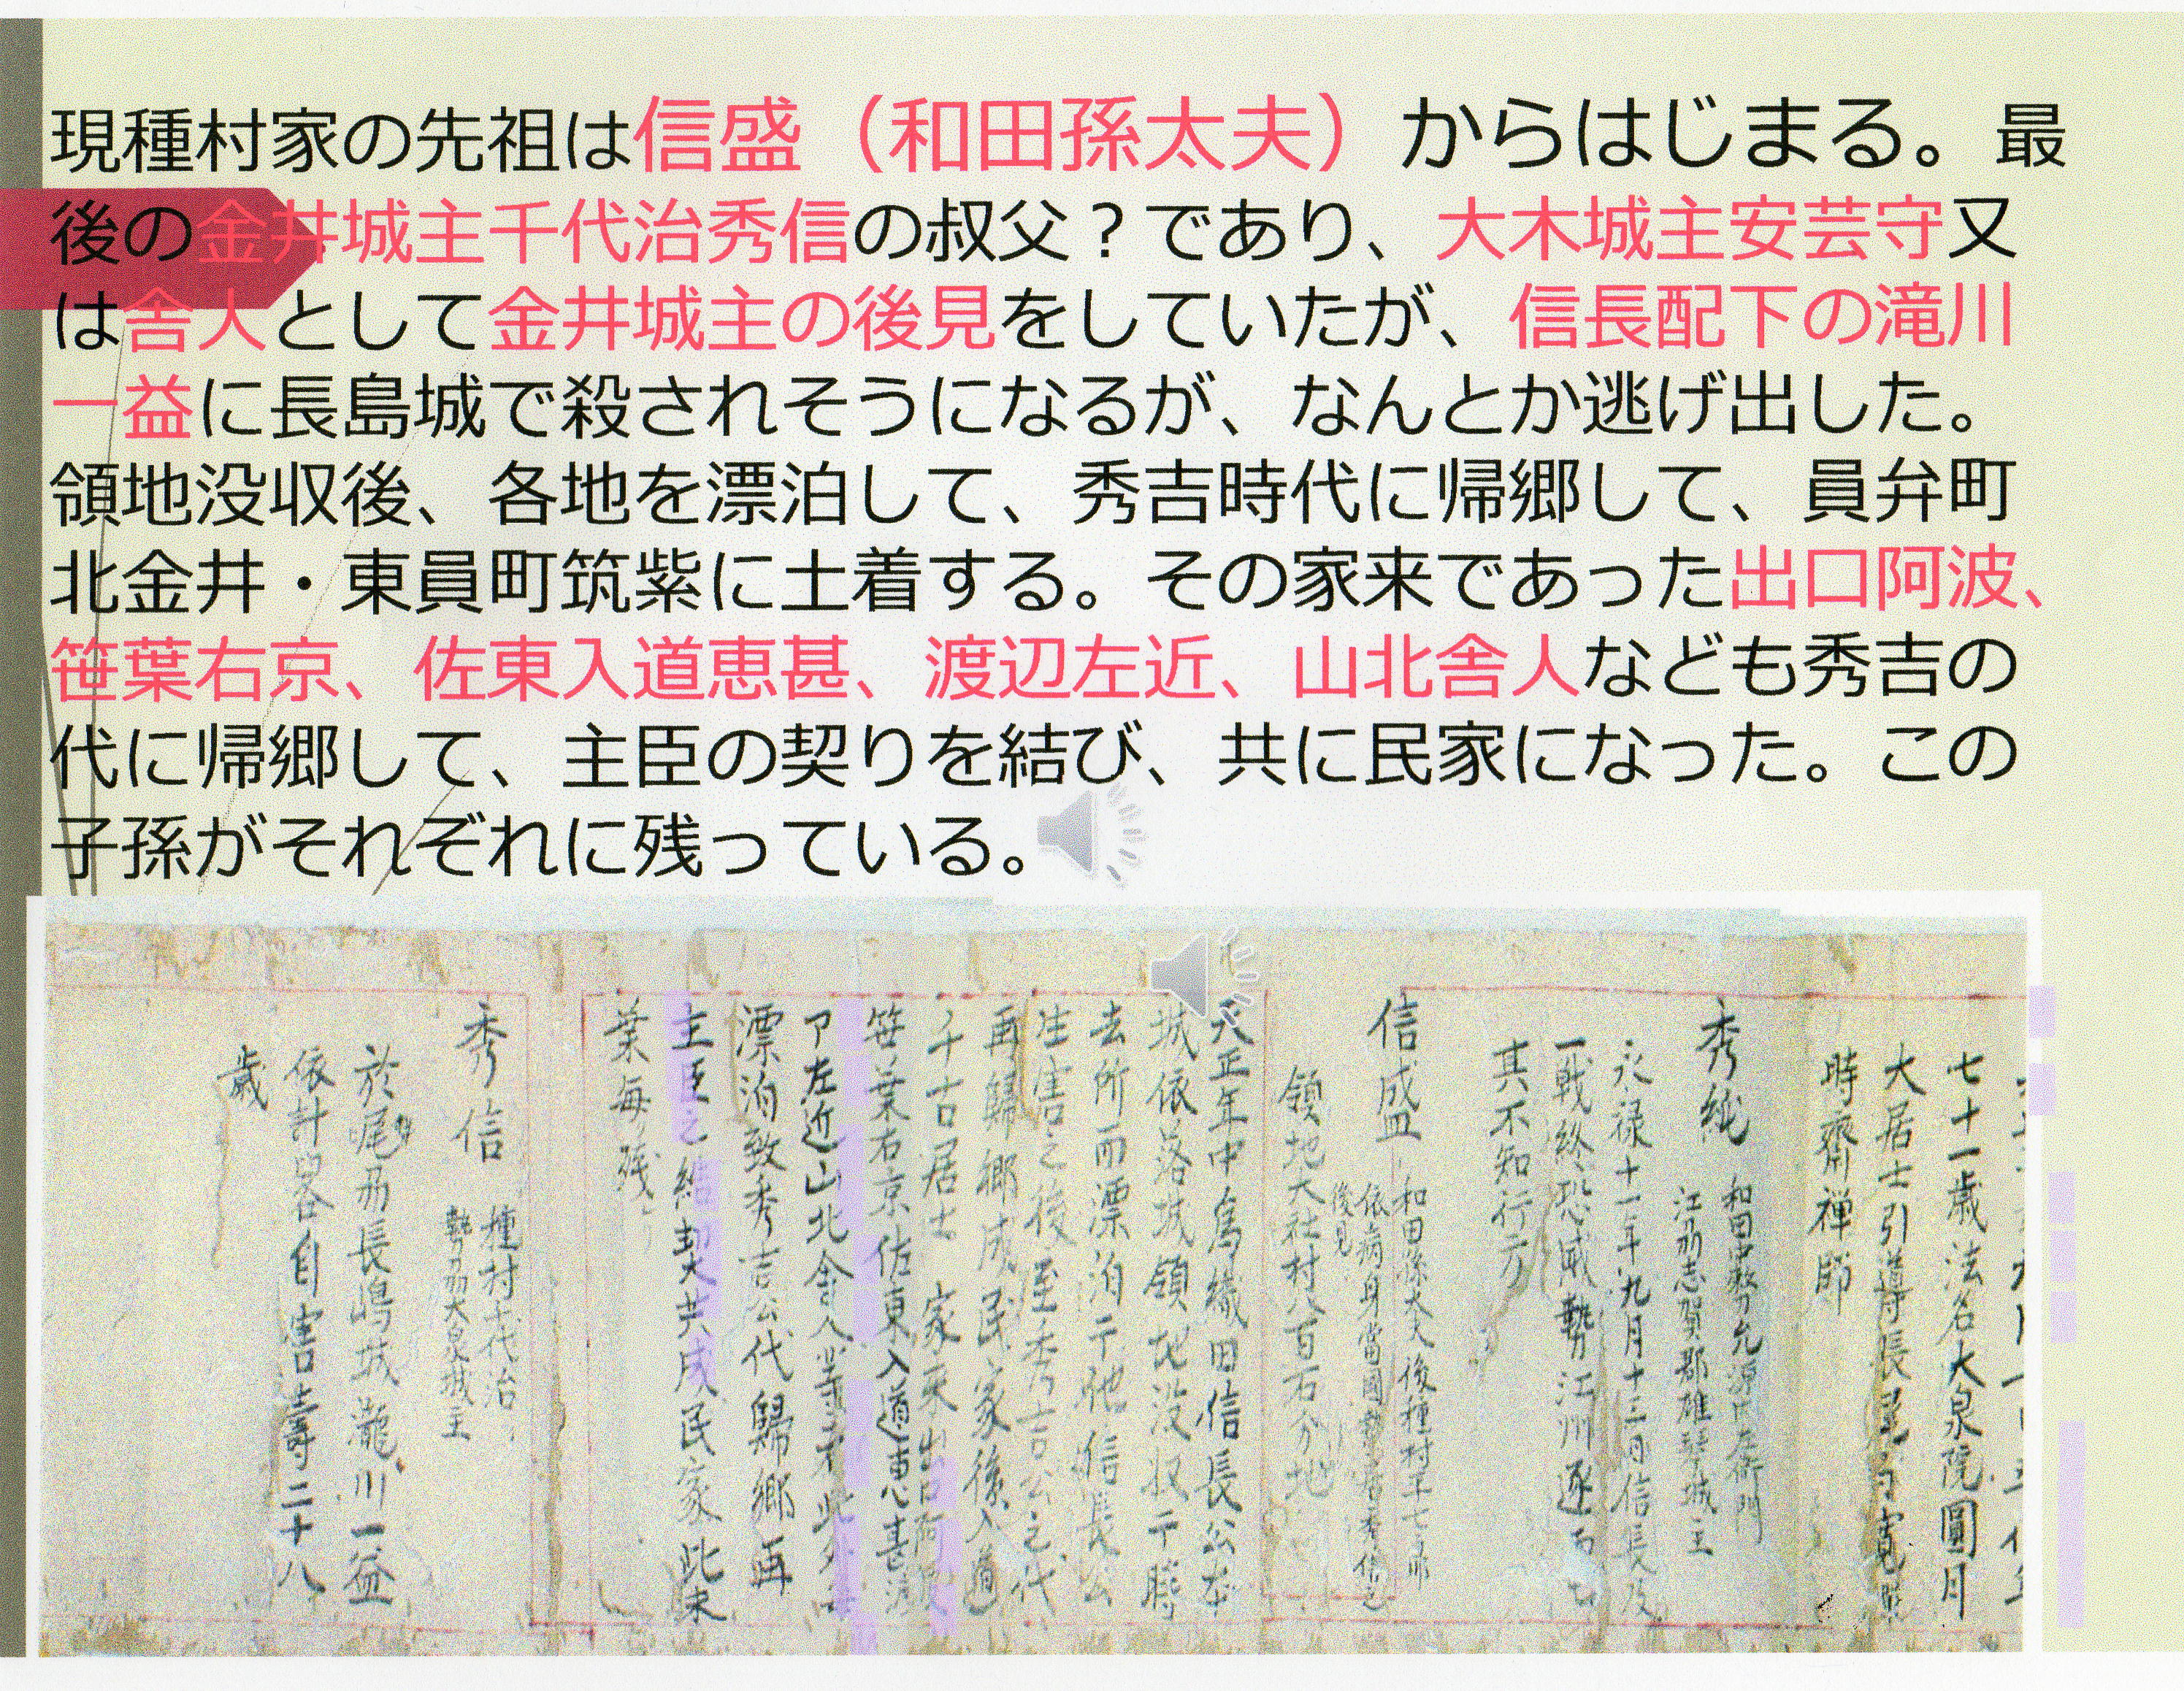 現種村家の先祖は信盛（和田孫太夫）からはじまる。最
後の金井城主千代治秀信の叔父？であり、大木城主安芸守又
は舎人として金井城主の後見をしていたが、信長配下の滝川
一益に長島城で殺されそうになるが、なんとか逃げ出した。
領地没収後、各地を漂泊して、秀吉時代に帰郷して、員弁町
北金井・東員町筑紫に土着する。その家来であった出口阿波、
笹葉右京、佐東入道恵甚、渡辺左近、山北舎人なども秀吉の
代に帰郷して、主臣の契りを結び、共に民家になった。この
子孫がそれぞれに残っている。
七十一歳法名大泉院圓月
大居士引導長
時齋禅師
秀純
和田中務允源
江刕志賀郡雄琴城主
永禄十一年九月十三日信長
一戦終恐威勢江州逐
其不知行方
信盛
和田孫太夫後種村
依病身當國
後見
領地大社村八百石分地
天正年中為織田信長公
城依落城領地没収于時
去所而漂泊于他信長公
生害之後至秀吉公之代
再歸郷成民家後入道
千古居士 家来出口阿波
笹葉右京佐東入道恵甚渡
ア左近山北舎人等
漂泊致秀吉公代歸郷再
主臣之結契共成民家此末
葉毎残
秀信
種村千代治
勢刕大泉城主
於尾刕長嶋城瀧川一益
依計畧自害壽二十八
歳